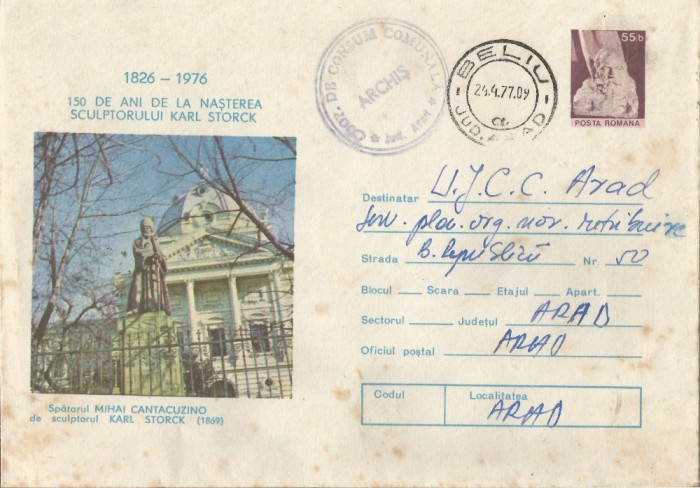 1826 – 1976
150 DE ANI DE LA NAȘTEREA
SCULPTORULUI KARL STORCK
COOP. DE CONSUM COMUNALA
ARCHIȘ
Jud. Arad
BELIU
24.4.77.09
a
JUD. ARAD
55 b
POSTA ROMANA
Destinatar U.J.C.C. Arad
Serv. plan. org. nor. retribuire
Strada B. Republicii Nr. 50
Blocul Scara Etajul Apart.
Sectorul Județul ARAD
Oficiul poștal ARAD
Codul Localitatea
ARAD
Spătarul MIHAI CANTACUZINO
de sculptorul KARL STORCK (1869)